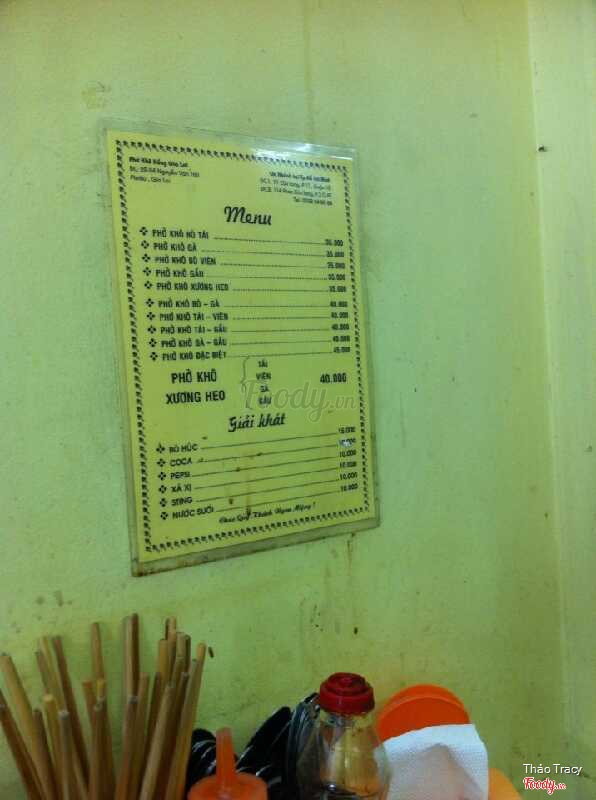 Phở Khô Hồng Gia Lai
Nguyễn Văn Trỗi
Pleiku, Gia Lai
Menu
PHỞ KHÔ BÒ TÁI 35.000
PHỞ KHÔ GÀ 35.000
PHỞ KHÔ BÒ VIÊN 35.000
PHỞ KHÔ GẦU 35.000
PHỞ KHÔ XƯƠNG HEO 35.000
PHỞ KHÔ BÒ - GÀ 40.000
PHỞ KHÔ TÁI - VIÊN 40.000
PHỞ KHÔ TÁI - GẦU 40.000
PHỞ KHÔ GÀ - GẦU 40.000
PHỞ KHÔ ĐẶC BIỆT 45.000
PHỞ KHÔ XƯƠNG HEO TÁI VIÊN GÀ GẦU 40.000
Giải khát
BÒ HÚC 15.000
COCA 10.000
PEPSI 10.000
XÁ XỊ 10.000
STING 10.000
NƯỚC SUỐI 10.000
Chúc Quý Khách Ngon Miệng !
Foody.vn
Thảo Tracy
Foody.vn